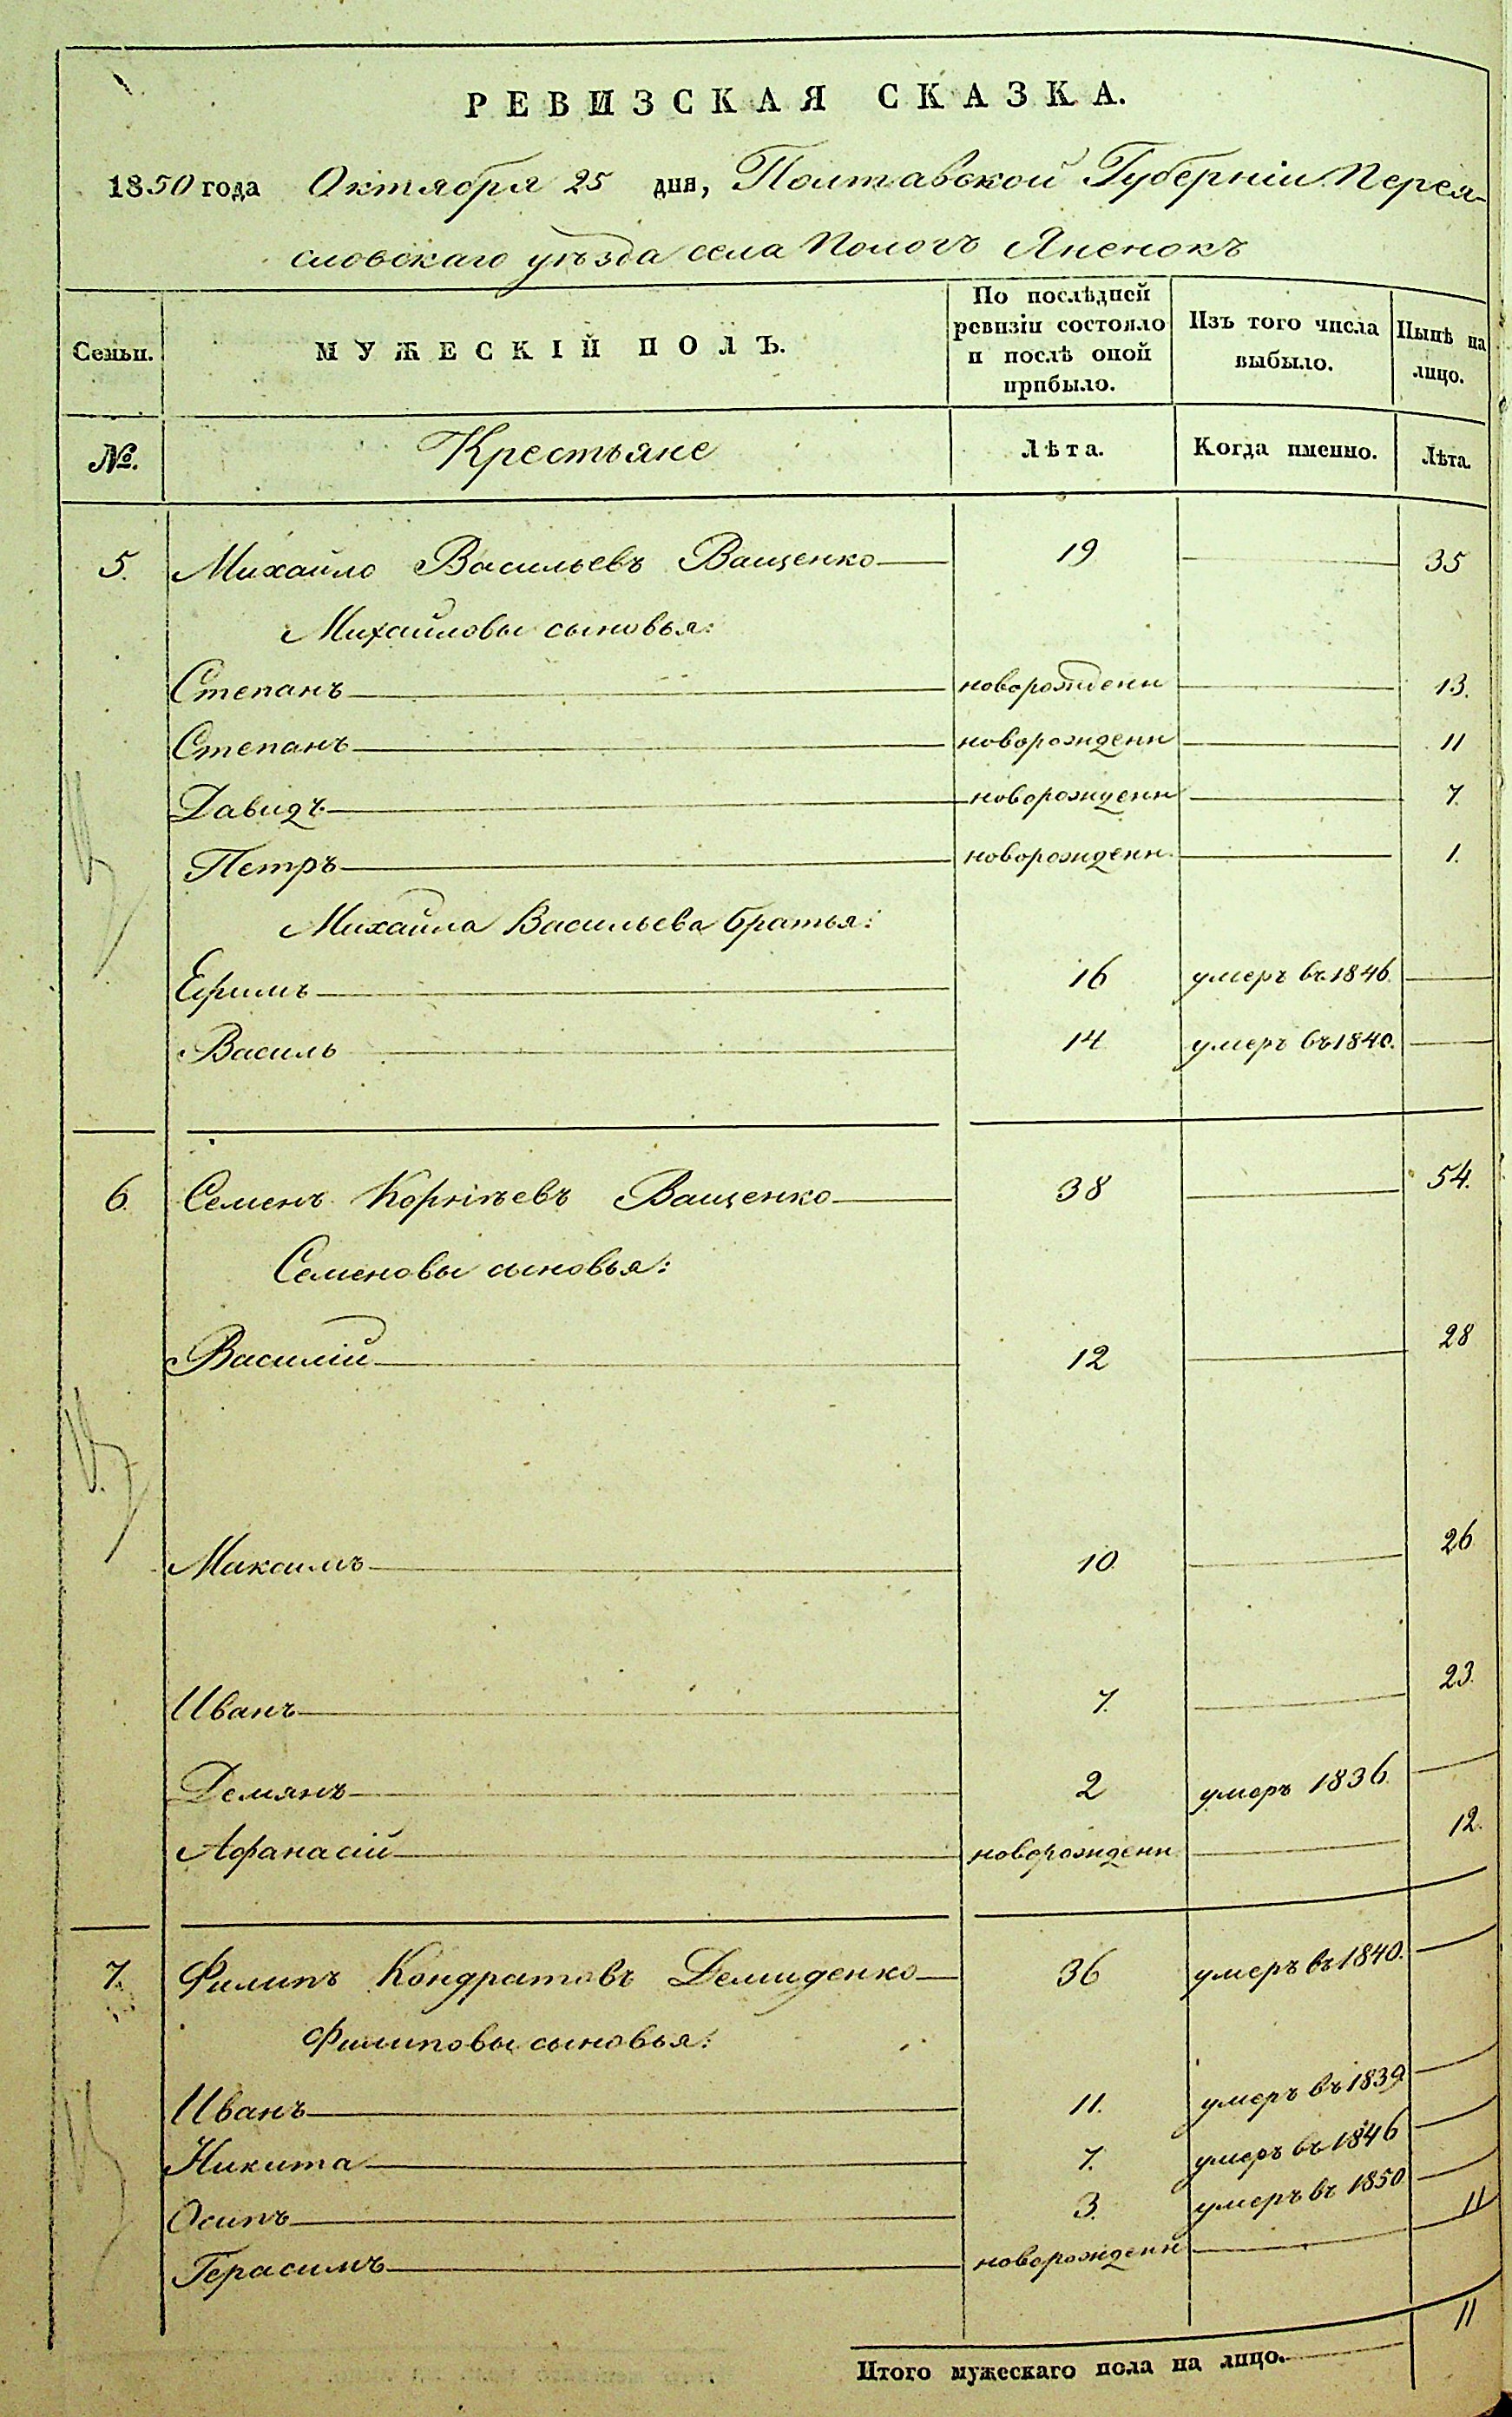 РЕВИЗСКАЯ СКАЗКА.
1850 года Октября 25 дня, Полтавской Губерніи Перея-
словскаго уѣзда села Пологъ Яненокъ
Семьи.
МУЖЕСКІЙ ПОЛЪ.
По послѣдней ревизіи состояло и послѣ оной прибыло.
Изъ того числа выбыло.
Нынѣ на лицо.
№.
Крестьяне
Лѣта.
Когда именно.
Лѣта.
5. Михайло Васильевъ Ващенко 19 35
Михайловы сыновья:
Степанъ новорожденн 13.
Степанъ новорожденн 11
Давидъ новорожденн 7.
Петръ новорожденн. 1.
Михайла Васильева братья:
Ефимъ 16 умеръ въ 1846.
Василь 14 умеръ въ 1840.
6. Семенъ Корнѣевъ Ващенко 38 54.
Семеновы сыновья:
Василій 12 28
Максимъ 10. 26
Иванъ 7. 23.
Демянъ 2 умеръ 1836.
Афанасій новорожденн 12.
7. Филипъ Кондратовъ Демиденко 36 умеръ въ 1840.
Филиповы сыновья:
Иванъ 11. умеръ въ 1839
Никита 7. умеръ въ 1846
Осипъ 3. умеръ въ 1850
Герасимъ новорожденн 11
Итого мужескаго пола на лицо. 11